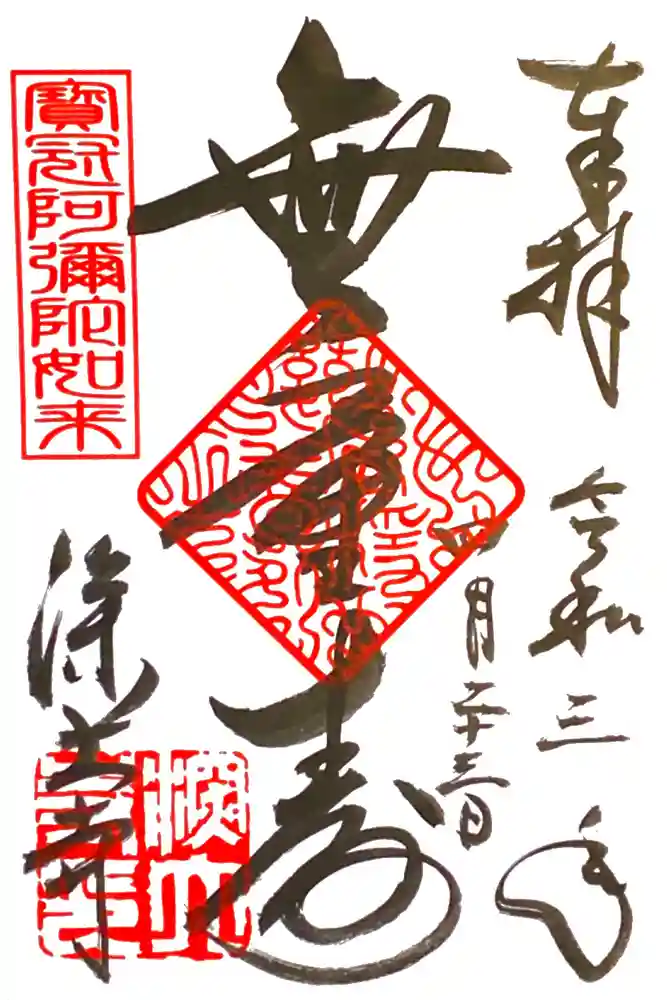 奉拝
令和三年
四月二十三日
無量寿
寶冠阿彌陀如来
深大寺